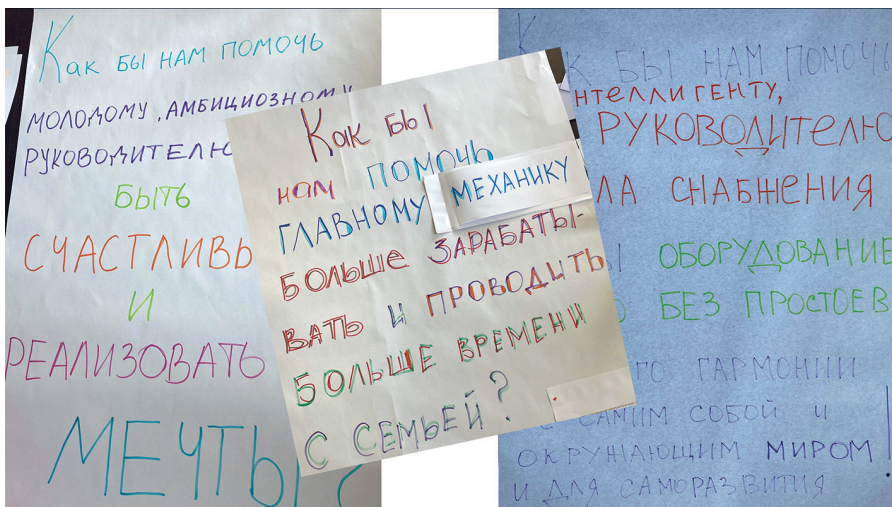 Как бы нам помочь
молодому, амбициозному
руководителю
быть
счастливы
и
реализовать
мечты?
Как бы
нам помочь
главному механику
больше зарабаты-
вать и проводить
больше времени
с семьей?
К бы нам помочь
нтеллигенту,
руководителю
ла снабжения
оборудование
без простоев
гармонии
с самим собой и
окружающим миром!
и для саморазвития